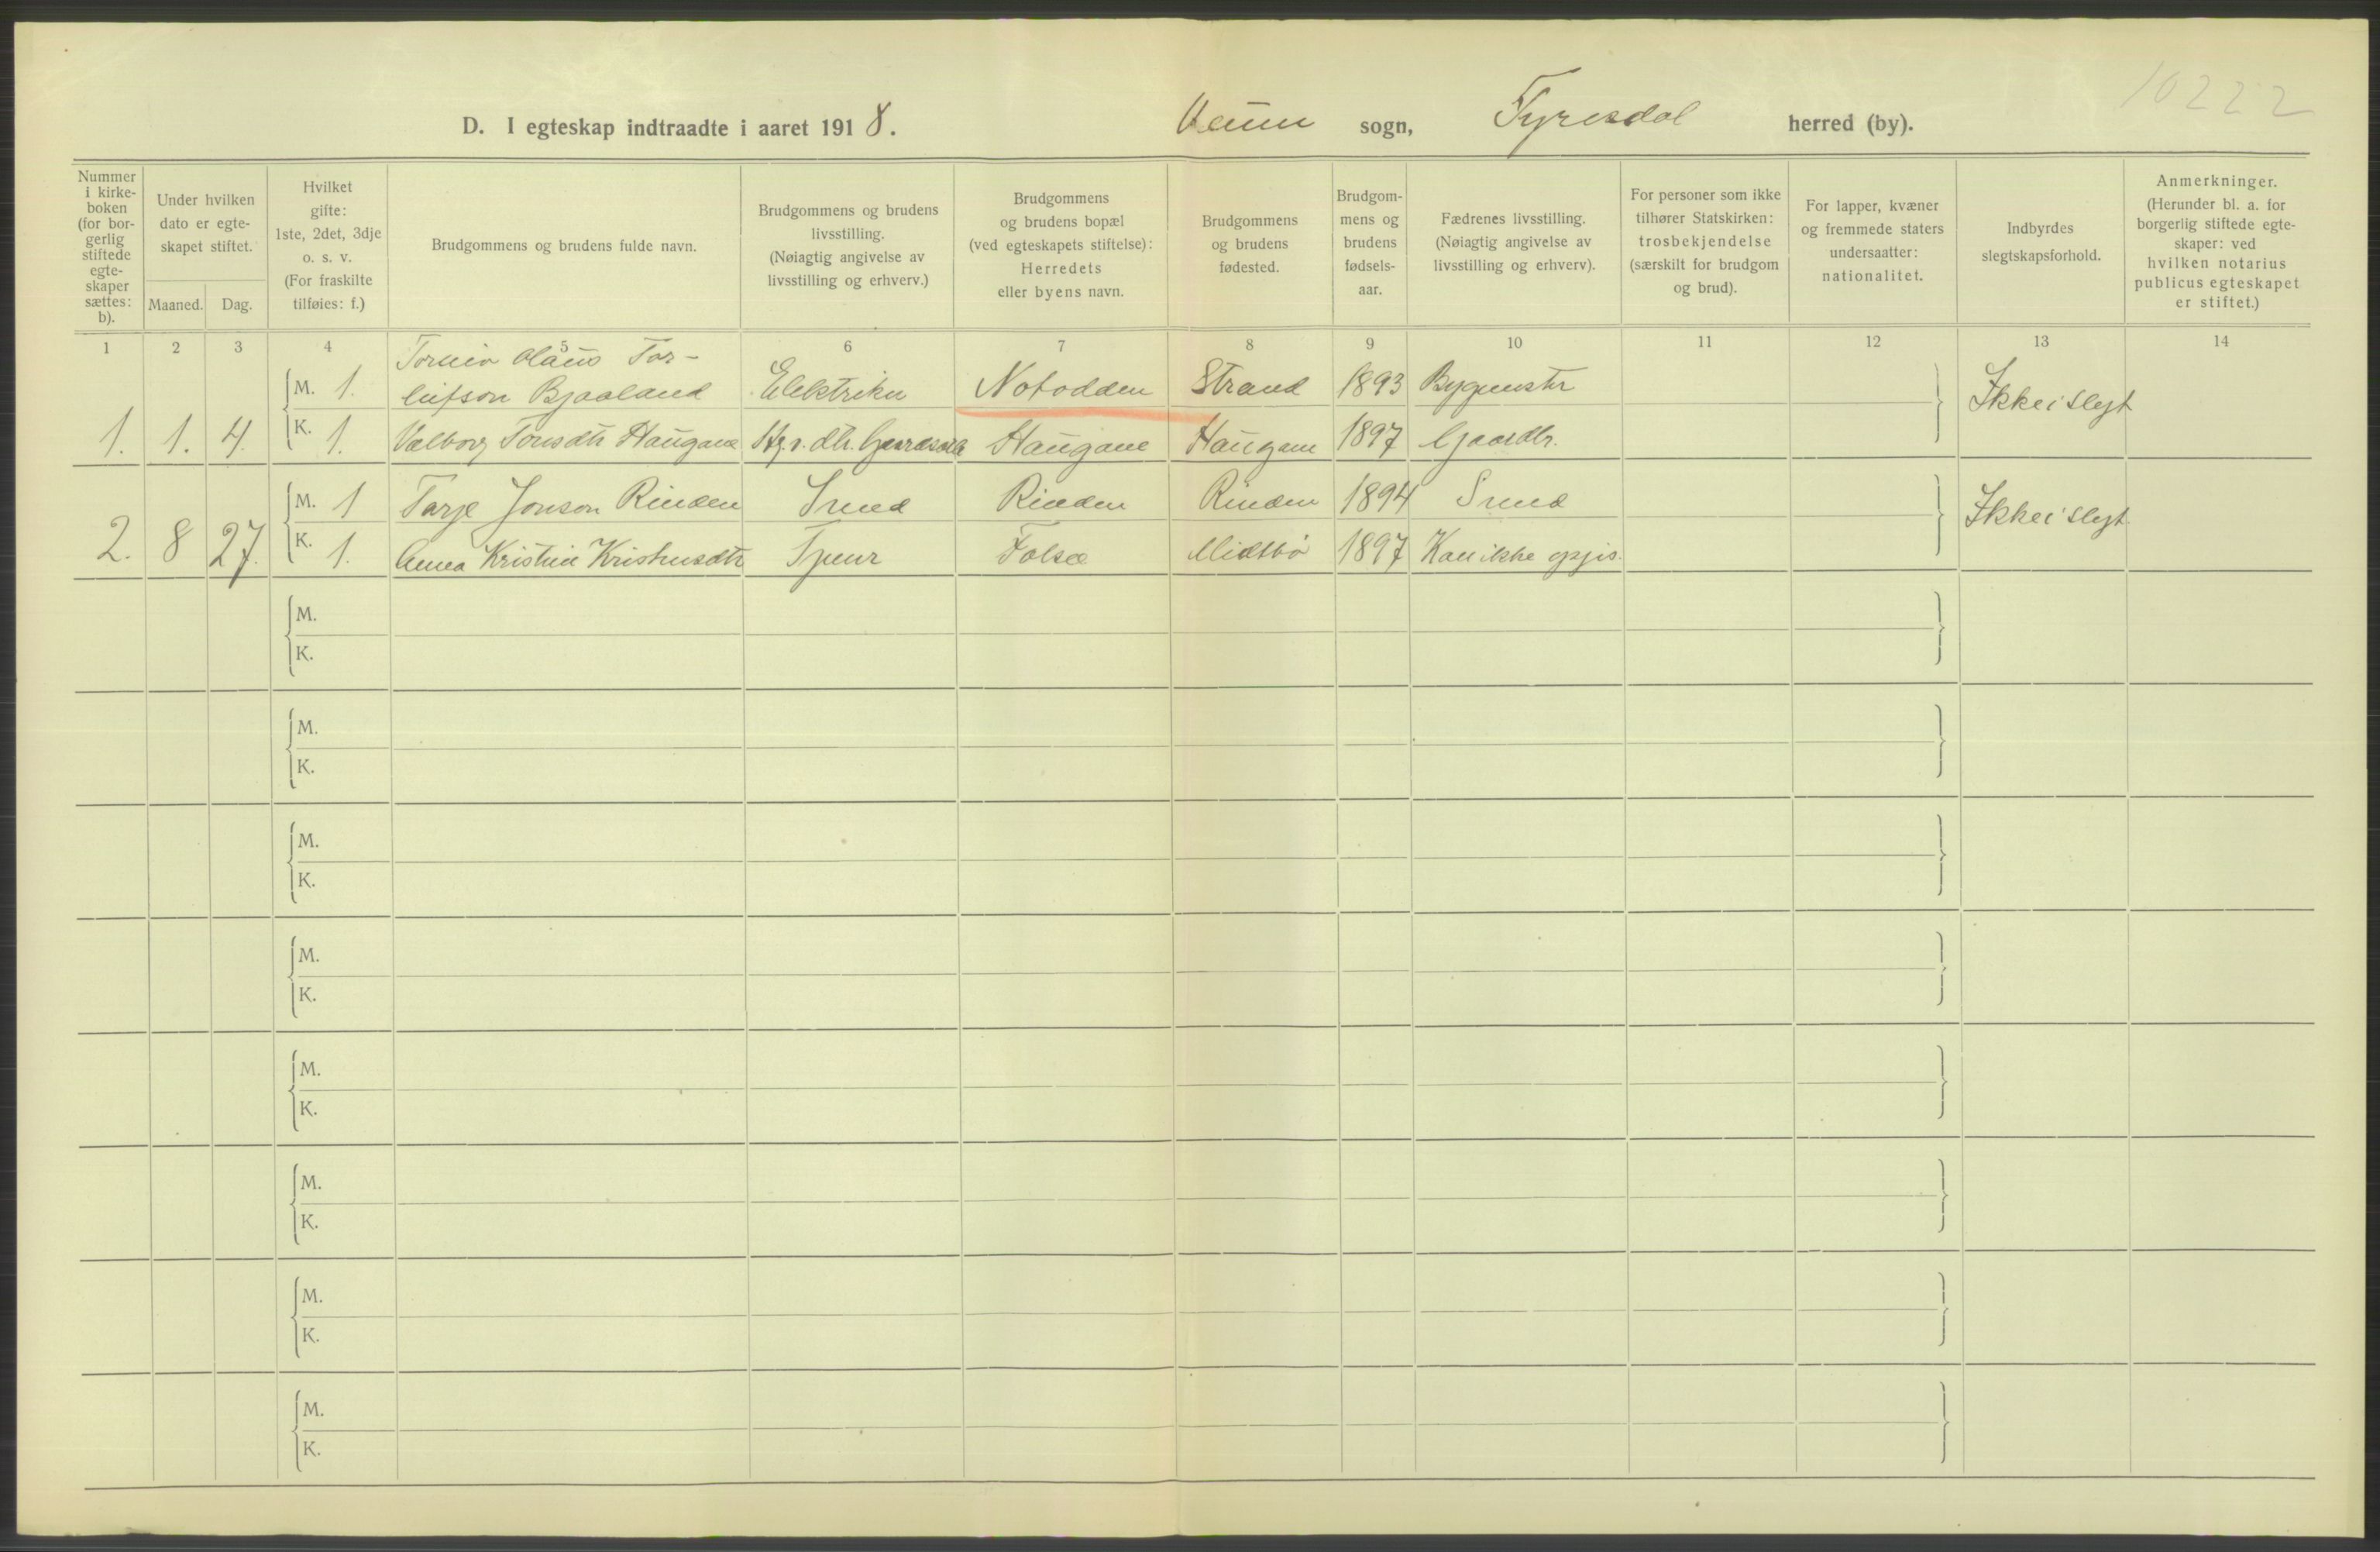 10222
D. I egteskap indtraadte i aaret 1918. Veum sogn, Tyresdal herred (by).
Nummer i kirkeboken (for borgerlig stiftede egteskaper sættes: b).
Under hvilken dato er egteskapet stiftet.
Maaned. Dag.
Hvilket gifte: 1ste, 2det, 3dje o. s. v. (For fraskilte tilføies: f.)
Brudgommens og brudens fulde navn.
Brudgommens og brudens livsstilling. (Nøiagtig angivelse av livsstilling og erhverv.)
Brudgommens og brudens bopæl (ved egteskapets stiftelse): Herredets eller byens navn.
Brudgommens og brudens fødested.
Brudgommens og brudens fødselsaar.
Fædrenes livsstilling. (Nøiagtig angivelse av livsstilling og erhverv).
For personer som ikke tilhører Statskirken: trosbekjendelse (særskilt for brudgom og brud).
For lapper, kvæner og fremmede staters undersaatter: nationalitet.
Indbyrdes slegtskapsforhold.
Anmerkninger. (Herunder bl. a. for borgerlig stiftede egteskaper: ved hvilken notarius publicus egteskapet er stiftet.)
1 2 3 4 5 6 7 8 9 10 11 12 13 14
Olaus Tor-
M. 1. Bjaaland Elektriker Notodden Strand 1893 Bygmester Ikke i slegt
1. 1. 4. K. 1. Valborg Tonsdtr Haugane Haugane Haugane 1897 Gaardbr.
M. 1 Tarje Jonson Rinden Smed Rinden Rinden 1894 Smed Ikke i slegt
2. 8 27. K. 1. Anna Kristine Kristensdtr Tjener Folsæ Midtbø 1897 Kan ikke opgis.
M.
K.
M.
K.
M.
K.
M.
K.
M.
K.
M.
K.
M.
K.
M.
K.